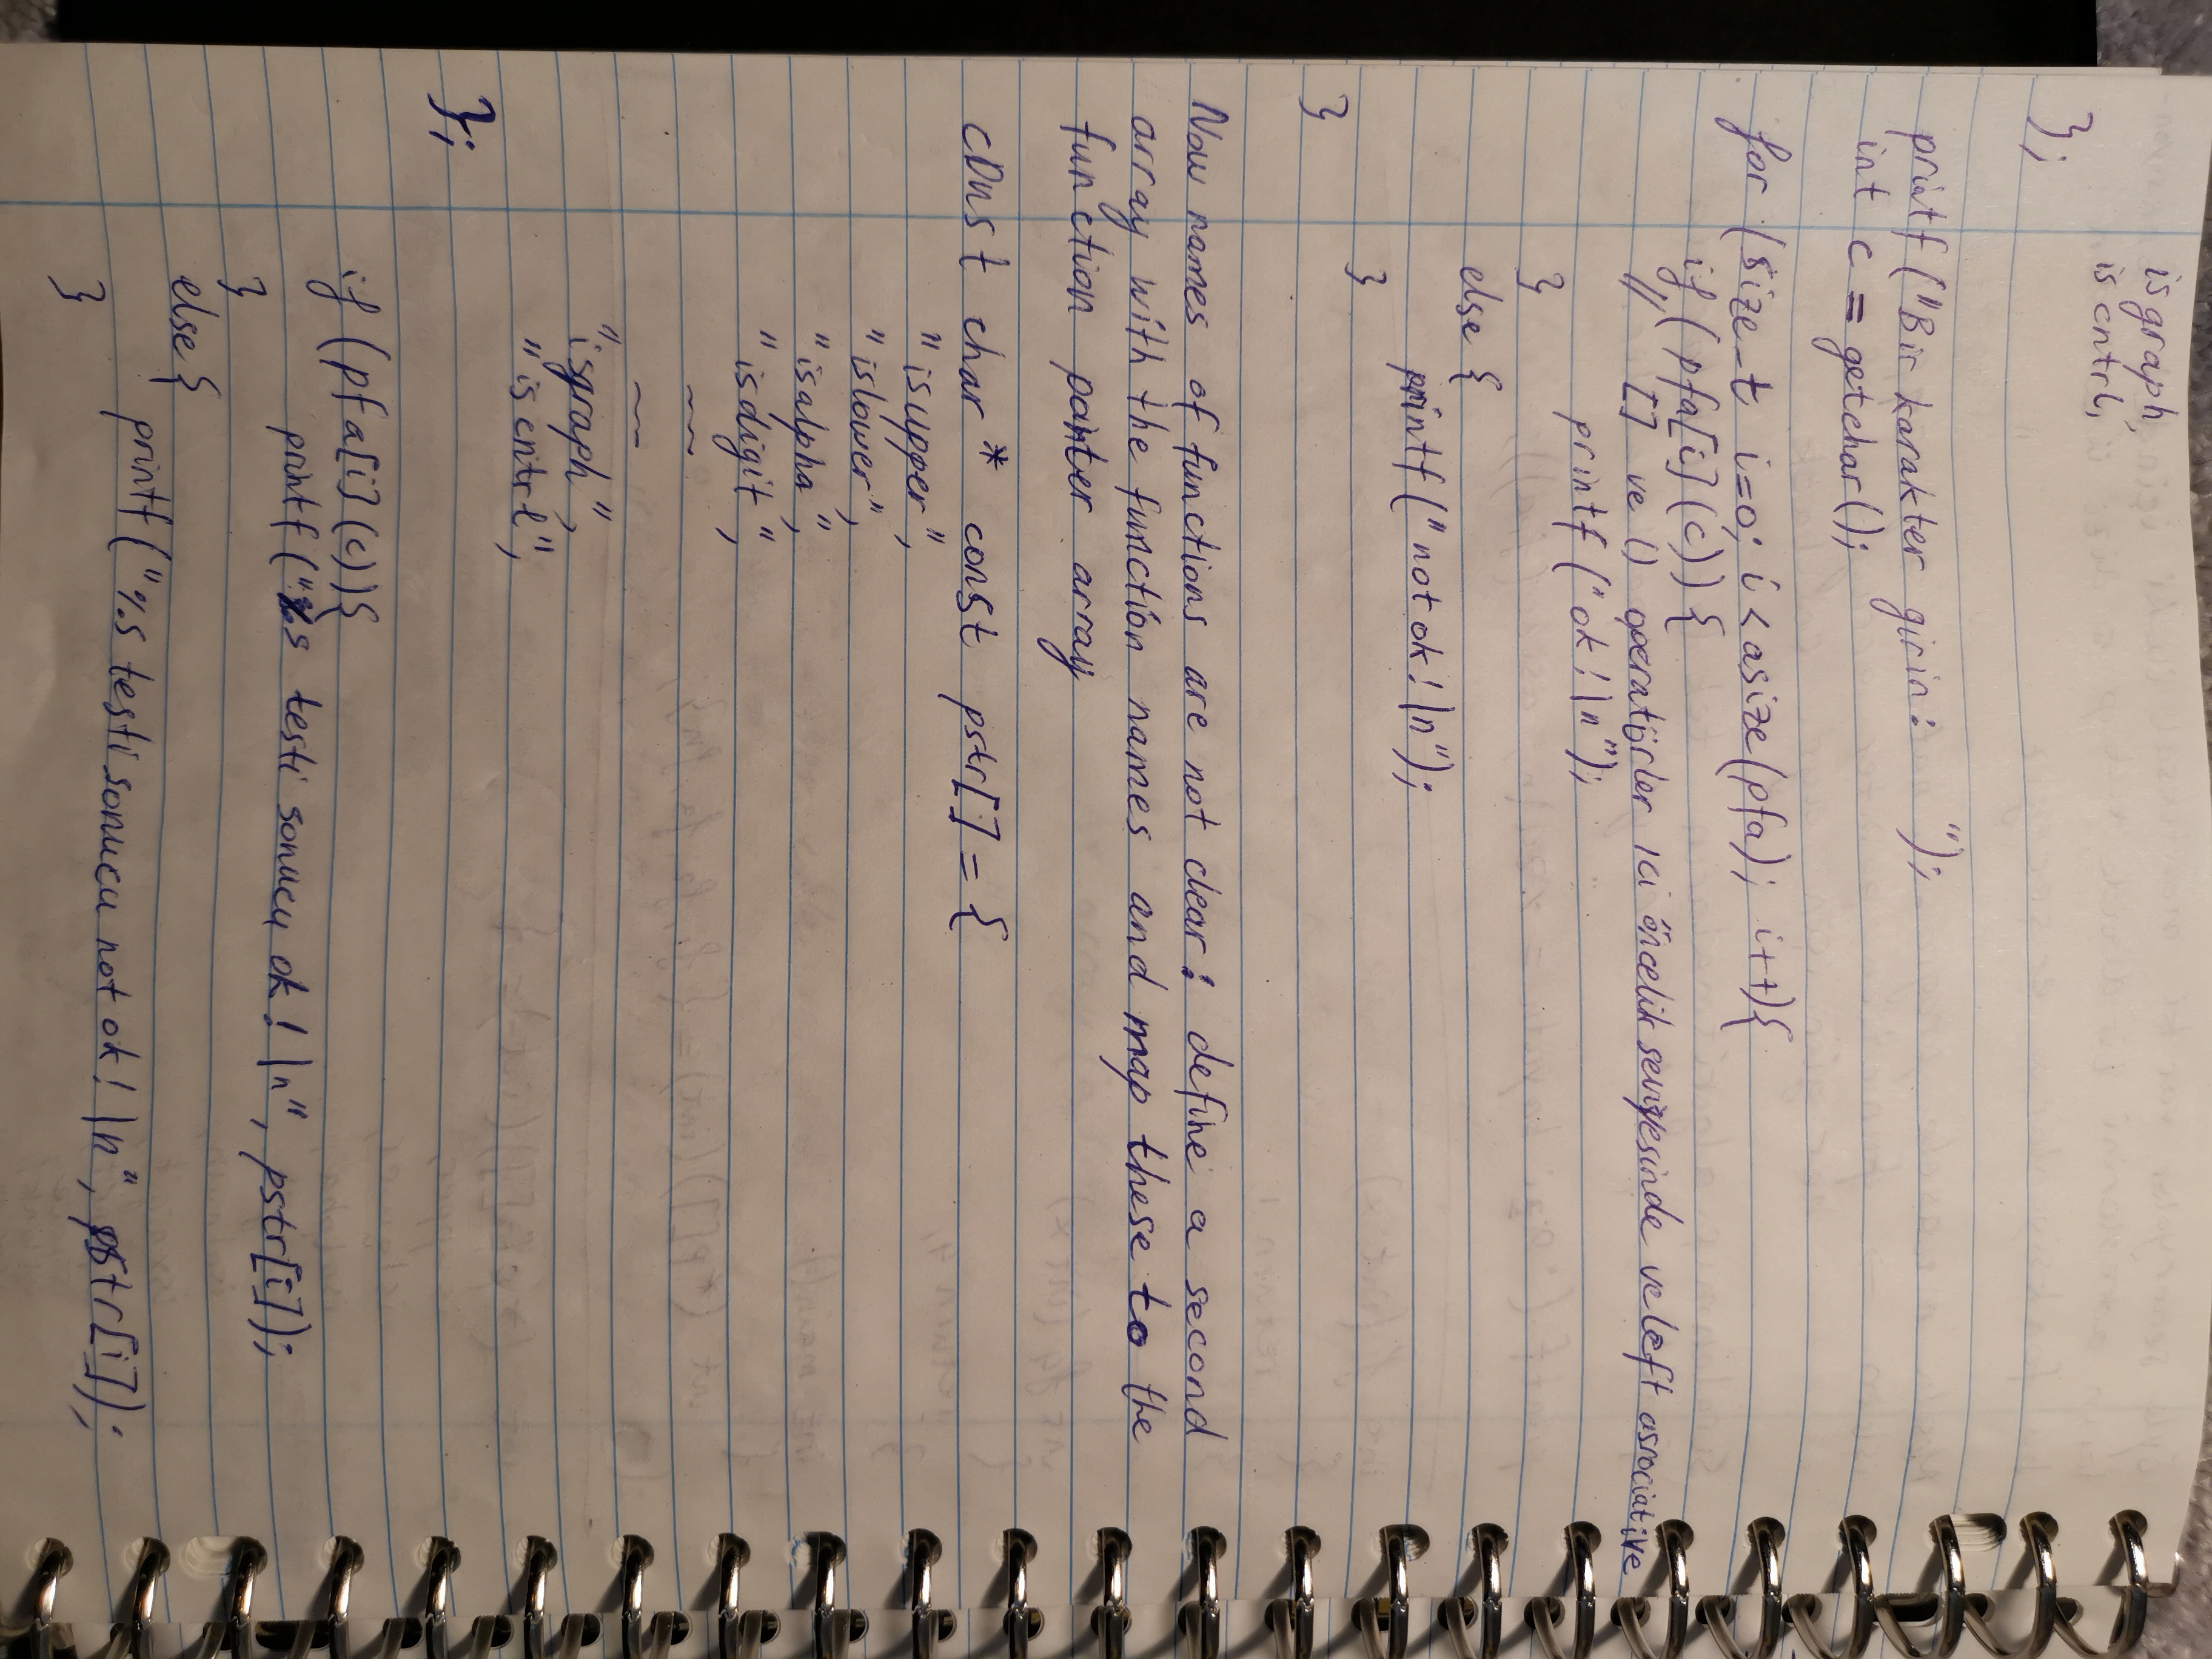 isgraph,
iscntrl,
};
printf("Bir karakter girin: ");
int c = getchar();
for (size_t i=0; i<asize(pfa); i++){
if (pfa[i](c)){
// [] ve () operatörler 1ci öncelik seviyesinde ve left associative
printf("ok!\n");
}
else {
printf("not ok!\n");
}
}
Now names of functions are not clear: define a second
array with the function names and map these to the
function pointer array
const char* const pstr[] = {
"isupper",
"islower",
"isalpha",
"isdigit",
~~
~~
"isgraph",
"iscntrl",
};
if (pfa[i](c)){
printf("%s testi sonucu ok!\n", pstr[i]);
}
else{
printf("%s testi sonucu not ok!\n", pstr[i]);
}